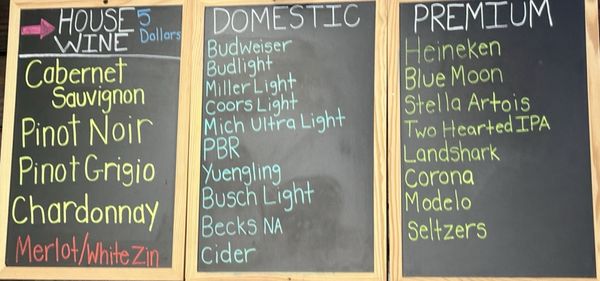 HOUSE 5
WINE Dollars
Cabernet
Sauvignon
Pinot Noir
Pinot Grigio
Chardonnay
Merlot/White Zin
DOMESTIC
Budweiser
Budlight
Miller Light
Coors Light
Mich Ultra Light
PBR
Yuengling
Busch Light
Becks NA
Cider
PREMIUM
Heineken
Blue Moon
Stella Artois
Two Hearted IPA
Landshark
Corona
Modelo
Seltzers